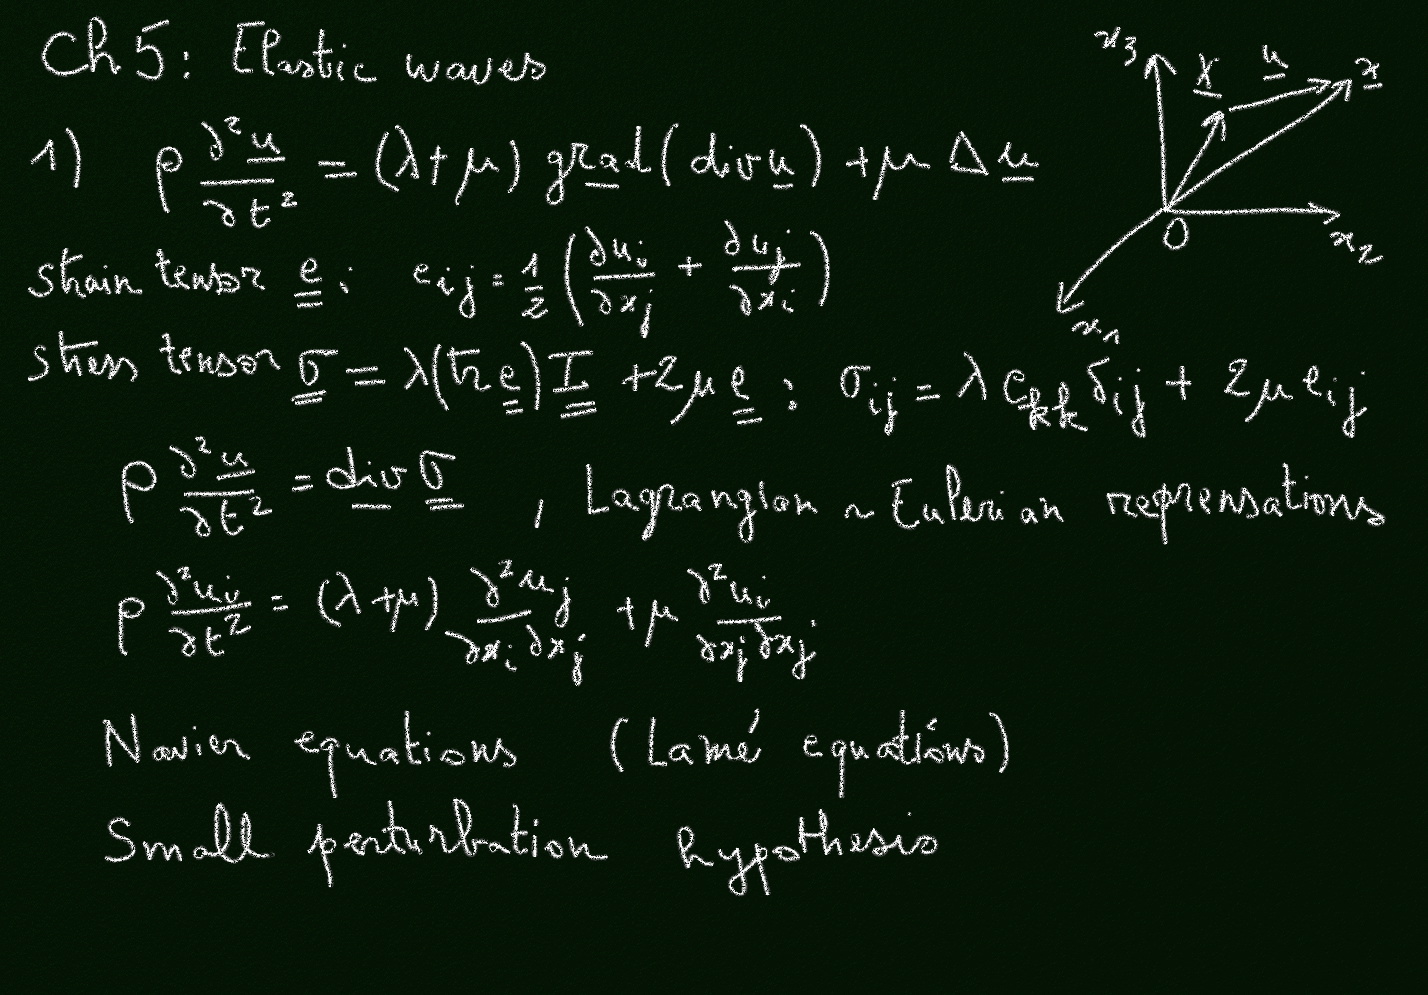 Ch 5: Elastic waves
1) ρ ∂²u/∂t² = (λ+μ) grad(div u) + μ Δ u
strain tensor e : e_ij = 1/2 (∂u_i/∂x_j + ∂u_j/∂x_i)
stress tensor σ = λ(tr e) I + 2μ e : σ_ij = λ e_kk δ_ij + 2μ e_ij
ρ ∂²u/∂t² = div σ , Lagrangian ~ Eulerian reprensations
ρ ∂²u_i/∂t² = (λ+μ) ∂²u_j/∂x_i ∂x_j + μ ∂²u_i/∂x_j ∂x_j
Navier equations (Lamé equations)
Small perturbation hypothesis
x3
X
u
x
O
x2
x1